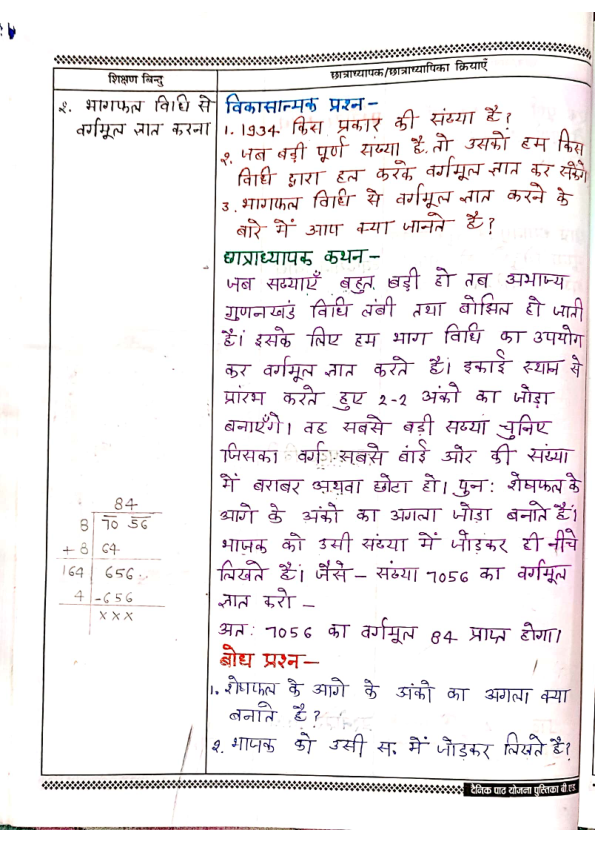 शिक्षण बिन्दु
छात्राध्यापक/छात्राध्यापिका क्रियाएँ
२. भागफल विधि से
वर्गमूल ज्ञात करना
विकासात्मक प्रश्न-
1. 1934 किस प्रकार की संख्या है?
२. जब बड़ी पूर्ण संख्या है, तो उसको हम किस
विधि द्वारा हल करके वर्गमूल ज्ञात कर सकेंगे
3. भागफल विधि से वर्गमूल ज्ञात करने के
बारे में आप क्या जानते है?
छात्राध्यापक कथन-
जब संख्याएँ बहुत बड़ी हो तब अभाज्य
गुणनखंड विधि लंबी तथा बोझिल हो जाती
है। इसके लिए हम भाग विधि का उपयोग
कर वर्गमूल ज्ञात करते है। इकाई स्थान से
प्रारंभ करते हुए 2-2 अंको का जोड़ा
बनाएँगे। वह सबसे बड़ी संख्या चुनिए
जिसका वर्ग सबसे बांई ओर की संख्या
में बराबर अथवा छोटा हो। पुन: शेषफल के
आगे के अंको का अगला जोड़ा बनाते है।
भाजक को उसी संख्या में जोड़कर ही नीचे
लिखते है। जैसे- संख्या 7056 का वर्गमूल
ज्ञात करो -
84
8 70 56
+ 8 64
164 656
4 -656
xxx
अत: 7056 का वर्गमूल 84 प्राप्त होगा।
बोध प्रश्न-
1. शेषफल के आगे के अंको का अगला क्या
बनाते है?
२. भाजक को उसी स. में जोड़कर लिखते है?
दैनिक पाठ योजना पुस्तिका बी.एड.